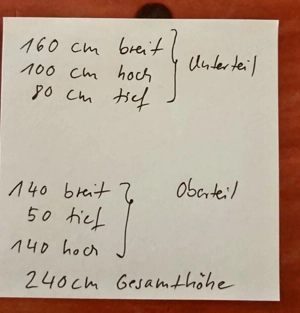 160 cm breit
100 cm hoch
80 cm tief
Unterteil
140 breit
50 tief
140 hoch
Oberteil
240cm Gesamthöhe